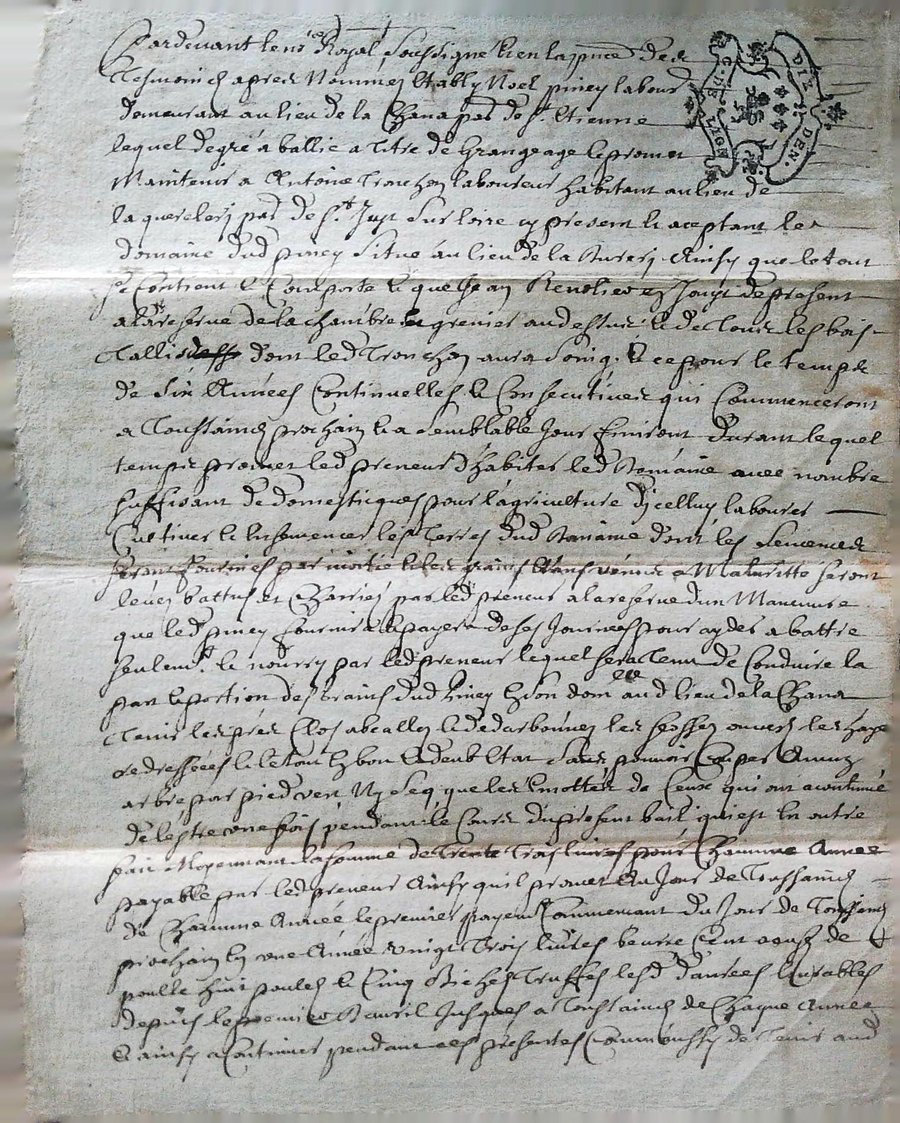 Pardevant le nore Royal soussigné & en la pnce des
Tesmoins apres Nommez Estably Noel piney labour
demeurant au lieu de la Chana psse de St. Etienne
lequel de gré a ballié a titre de Grangeage & promet
Maintenir a Antoine Tronchon laboureur habitant au lieu de
psse de St. Just sur loire cy present & aceptant le
domaine dud piney situé au lieu de la Ainsy que le tout
se Contient & Comporte & que Jean en Jouyt de present
a la reserve de la chambre grenier au dessus & de Tous les bois
Tallis dont led Tronchon aura soing, & ce pour le temps
de six Années Continuelles & Consecutives qui Commenceront
a Toussainctz prochain & a semblable Jour finiront durant lequel
temps promet led preneur d'habiter led Domaine avec nombre
suffisant de domestiques pour l'agriculture d'jcelluy labourer
Cultiver & Ensemencer les Terres dud domaine dont les semences
seront fournies par moitié & les grains Estans venus a Maturitté seront
levez battus et Charriés par led preneur a la reserve d'un Maneuvre
que led piney fournira & payera de ses Journées pour ayder a battre
seulemt. & nourry par led preneur lequel sera Tenu de Conduire la
part & portion des grains dud piney En son domlle aud lieu de la Chana
Tenir les prés Clos les fossez ouvers les hayes
redressées & le tout En bon & deub Estat sans pouvoir Couper Aucung
arbre par pied vert Ny secq que les Emottes de Ceux qui ont acoutumé
de l'estre une fois pendant le Cours du present bail qui est En outre
fait Moyennant la somme de Trente Trois livres pour Chacunne Année
payable par led preneur Ainsy qu'il promet Au Jour de Toussainctz
de Chacunne Année le premier payemt Commencant du Jour de Toussainctz
prochain En une Année vingt Trois livres beurre Cent oeufs de
poulle huit poulets & Cinq Bichets Truffes lesd danrées livrables
depuis le premier D'avril Jusques a Toussainctz de Chaque Année
& ainsy a Continuer pendant ces presentes de Tenir aud
C. DE LYON
DIX DEN.